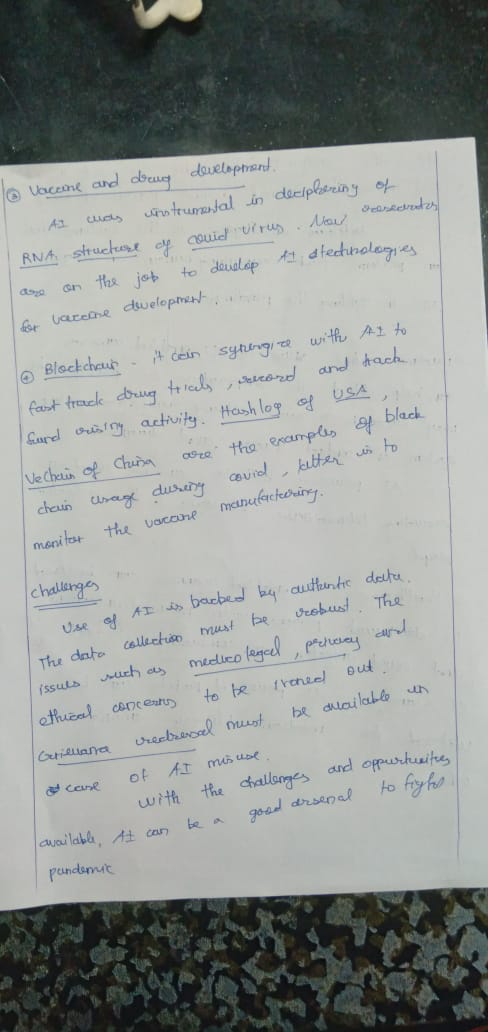 ③ Vaccine and drug development.
AI was instrumental in deciphering of
RNA structure of covid virus. Now researchers
are on the job to develop AI technologies
for vaccine development.
④ Blockchain - it can synergize with AI to
fast track drug trials, record and track
fund raising activity. Hashlog of USA,
VeChain of China are the examples of block
chain usage during covid, latter is to
monitor the vaccine manufacturing.
Challenges
Use of AI is backed by authentic data.
The data collection must be robust. The
issues such as medico legal, privacy and
ethical concerns to be ironed out.
Grievance redressal must be available in
case of AI misuse.
With the challenges and oppurtunities
available, AI can be a good arsenal to fight
pandemic